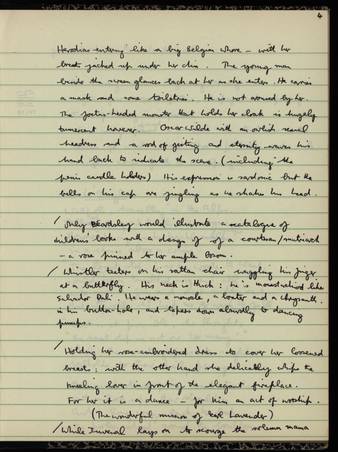 4
Herodias entering like a big Belgian whore – with her
breasts jacked up under her chin. The young man
beside the screen glances back at her as she enters. He carries
a mask and some toiletries. He is not aroused by her.
The foetus-headed monster that holds her cloak is hugely
tumescent however. Oscar Wilde with an owlish
headdress and a rod of and eternity waves his
hand back to indicate the scene. (including the
penis candle holders) His expression is sardonic but the
bells on his cap are jingling as he shakes his head.
/ Only Beardsley would illustrate a catalogue of
childrens' books with a design of a courtesan/
– a rose pinned to her ample bosom.
/ Whistler teeters on his rattan chair waggling his finger
at a butterfly. His neck is thick: he is moustachioed like
Salvador Dali. He wears a monocle, a and a chrysanth.
in his button-hole, and tapers down absurdly to dancing
pumps.
/ Holding her rose-embroidered dress to cover her loosened
breasts; with the other hand she delicately whips the
kneeling lover in front of the elegant fireplace.
For her it is a dance – for him an act of worship.
(The wonderful mission of Earl Lavender)
/ While Juvenal lays on to scourge the solemn mama